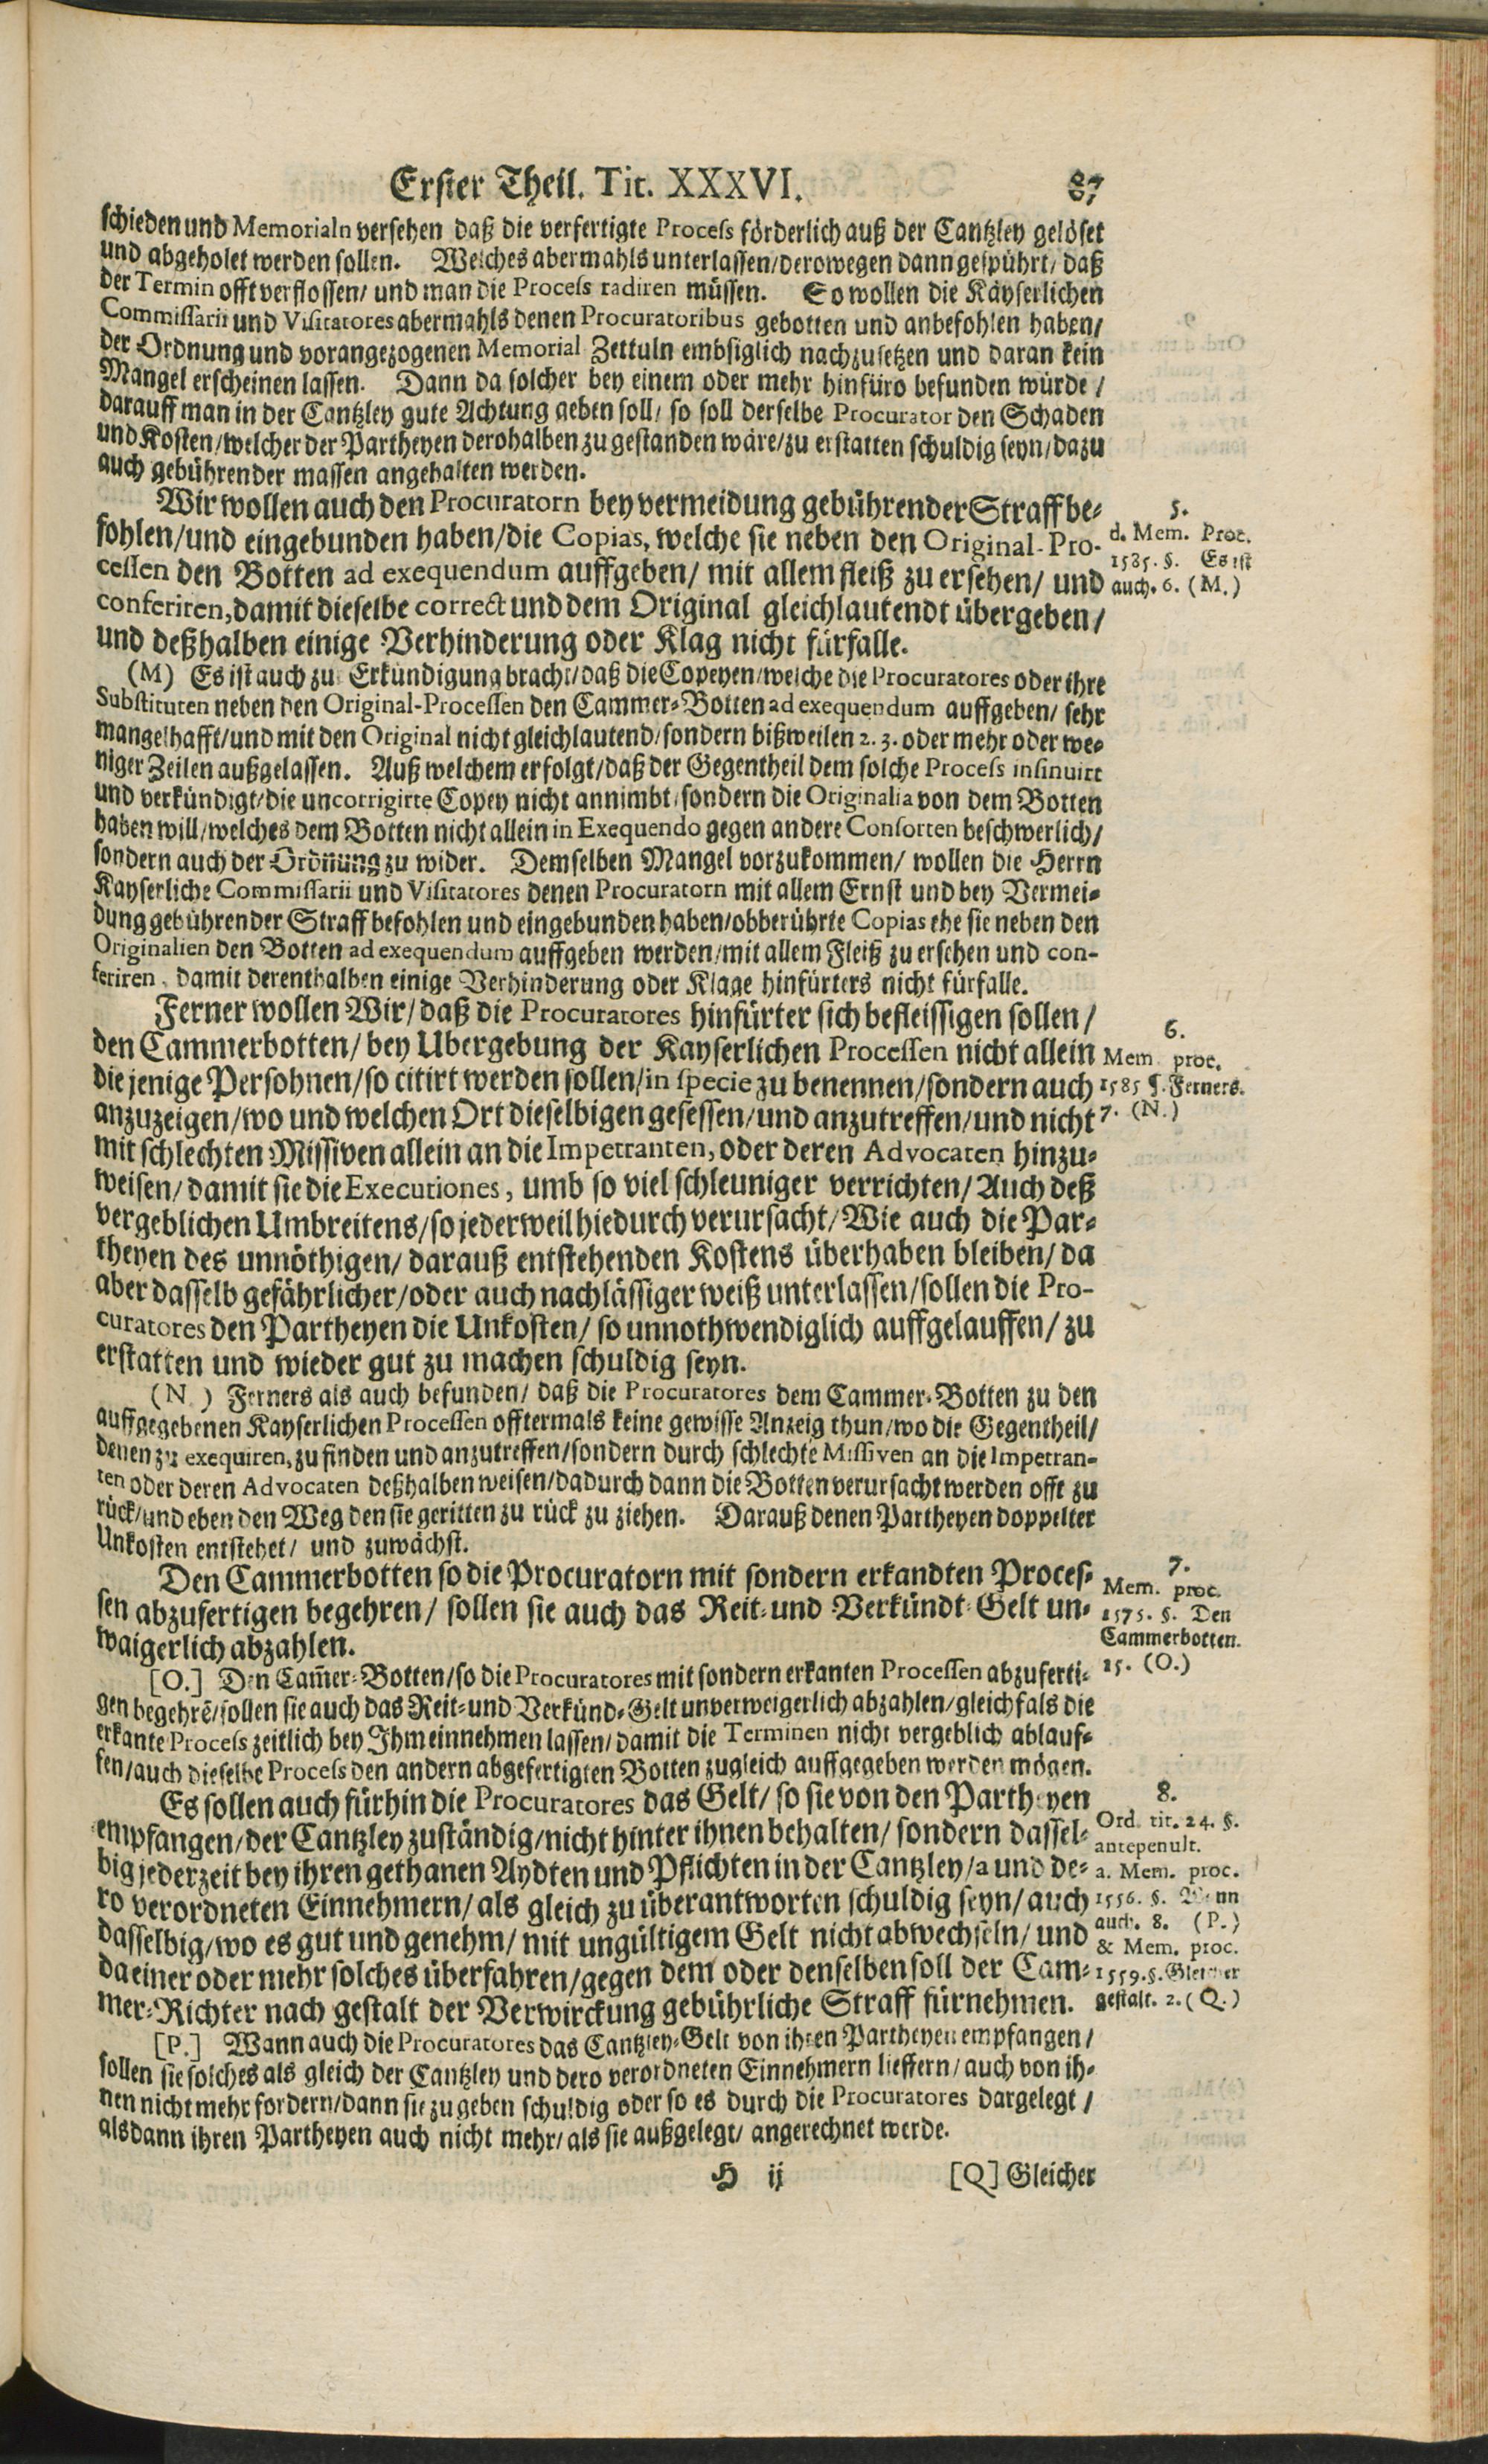 Erster Theil. Tit. XXXVI. 87
schieden und Memorialn versehen daß die verfertigte Process förderlich auß der Cantzley gelöset
und abgeholet werden sollen. Welches abermahls unterlassen/derowegen dann gespührt/ daß
der Termin offt verflossen/ und man die Process radiren müssen. So wollen die Käyserlichen
Commissarii und Visitatores abermahls denen Procuratoribus gebotten und anbefohlen haben/
der Ordnung und vorangezogenen Memorial Zettuln embsiglich nachzusetzen und daran kein
Mangel erscheinen lassen. Dann da solcher bey einem oder mehr hinfüro befunden würde /
darauff man in der Cantzley gute Achtung geben soll/ so soll derselbe Procurator den Schaden
und Kosten/welcher der Partheyen derohalben zu gestanden wäre/zu erstatten schuldig seyn/dazu
auch gebührender massen angehalten werden.
Wir wollen auch den Procuratorn bey vermeidung gebührender Straff be-
fohlen/und eingebunden haben/die Copias, welche sie neben den Original-Pro-
cessen den Botten ad exequendum auffgeben/ mit allem fleiß zu ersehen/ und
conferiren, damit dieselbe correct und dem Original gleichlautendt übergeben/
und deßhalben einige Verhinderung oder Klag nicht fürfalle.
5.
d. Mem. Proc.
1585. §. Es ist
auch. 6. (M.)
(M) Es ist auch zu Erkündigung bracht/daß die Copeyen/welche die Procuratores oder ihre
Substituten neben den Original-Processen den Cammer-Botten ad exequendum auffgeben/ sehr
mangelhafft/und mit den Original nicht gleichlautend/sondern bißweilen 2. 3. oder mehr oder we-
niger Zeilen außgelassen. Auß welchem erfolgt/daß der Gegentheil dem solche Process insinuirt
und verkündigt/die uncorrigirte Copey nicht annimbt/sondern die Originalia von dem Botten
haben will/welches dem Botten nicht allein in Exequendo gegen andere Consorten beschwerlich/
sondern auch der Ordnung zu wider. Demselben Mangel vorzukommen/ wollen die Herrn
Kayserliche Commissarii und Visitatores denen Procuratorn mit allem Ernst und bey Vermei-
dung gebührender Straff befohlen und eingebunden haben/obberührte Copias ehe sie neben den
Originalien den Botten ad exequendum auffgeben werden/mit allem Fleiß zu ersehen und con-
feriren, damit derenthalben einige Verhinderung oder Klage hinfürters nicht fürfalle.
Ferner wollen Wir/ daß die Procuratores hinfürter sich befleissigen sollen/
den Cammerbotten/ bey Ubergebung der Kayserlichen Processen nicht allein
die jenige Persohnen/so citirt werden sollen/in specie zu benennen/sondern auch
anzuzeigen/wo und welchen Ort dieselbigen gesessen/und anzutreffen/und nicht
mit schlechten Missiven allein an die Impetranten, oder deren Advocaten hinzu-
weisen/ damit sie die Executiones, umb so viel schleuniger verrichten/ Auch deß
vergeblichen Umbreitens/so jederweil hiedurch verursacht/ Wie auch die Par-
theyen des unnöthigen/ darauß entstehenden Kostens überhaben bleiben/ da
aber dasselb gefährlicher/oder auch nachlässiger weiß unterlassen/sollen die Pro-
curatores den Partheyen die Unkosten/ so unnothwendiglich auffgelauffen/ zu
erstatten und wieder gut zu machen schuldig seyn.
6.
Mem. proc.
1585 §. Ferners.
7. (N.)
(N.) Ferners als auch befunden/ daß die Procuratores dem Cammer-Botten zu den
auffgegebenen Kayserlichen Processen offtermals keine gewisse Anzeig thun/wo die Gegentheil/
denen zu exequiren, zu finden und anzutreffen/sondern durch schlechte Missiven an die Impetran-
ten oder deren Advocaten deßhalben weisen/dadurch dann die Botten verursacht werden offt zu
rück/und eben den Weg den sie geritten zu rück zu ziehen. Darauß denen Partheyen doppelter
Unkosten entstehet/ und zuwächst.
Den Cammerbotten so die Procuratorn mit sondern erkandten Proces-
sen abzufertigen begehren/ sollen sie auch das Reit-und Verkündt-Gelt un-
waigerlich abzahlen.
7.
Mem. proc.
1575. §. Den
Cammerbotten.
15. (O.)
[O.] Den Cam̃er-Botten/so die Procuratores mit sondern erkanten Processen abzuferti-
gen begehrē/sollen sie auch das Reit-und Verkünd-Gelt unverweigerlich abzahlen/gleichfals die
erkante Process zeitlich bey Ihm einnehmen lassen/damit die Terminen nicht vergeblich ablauf-
fen/auch dieselbe Process den andern abgefertigten Botten zugleich auffgegeben werden mögen.
Es sollen auch fürhin die Procuratores das Gelt/ so sie von den Partheyen
empfangen/der Cantzley zuständig/nicht hinter ihnen behalten/ sondern dassel-
big jederzeit bey ihren gethanen Aydten und Pflichten in der Cantzley/a und de-
ro verordneten Einnehmern/ als gleich zu überantworten schuldig seyn/ auch
dasselbig/wo es gut und genehm/ mit ungültigem Gelt nicht abwechseln/ und
da einer oder mehr solches überfahren/gegen dem oder denselben soll der Cam-
mer-Richter nach gestalt der Verwirckung gebührliche Straff fürnehmen.
8.
Ord. tit. 24. §.
antepenult.
a. Mem. proc.
1556. §. Wann
auch. 8. (P.)
& Mem. proc.
1559. §. Gleicher
gestalt. 2. (Q.)
[P.] Wann auch die Procuratores das Cantzley-Gelt von ihren Partheyen empfangen/
sollen sie solches als gleich der Cantzley und dero verordneten Einnehmern lieffern/ auch von ih-
nen nicht mehr fordern/dann sie zu geben schuldig oder so es durch die Procuratores dargelegt /
alsdann ihren Partheyen auch nicht mehr/ als sie außgelegt/ angerechnet werde.
H ij [Q] Gleicher